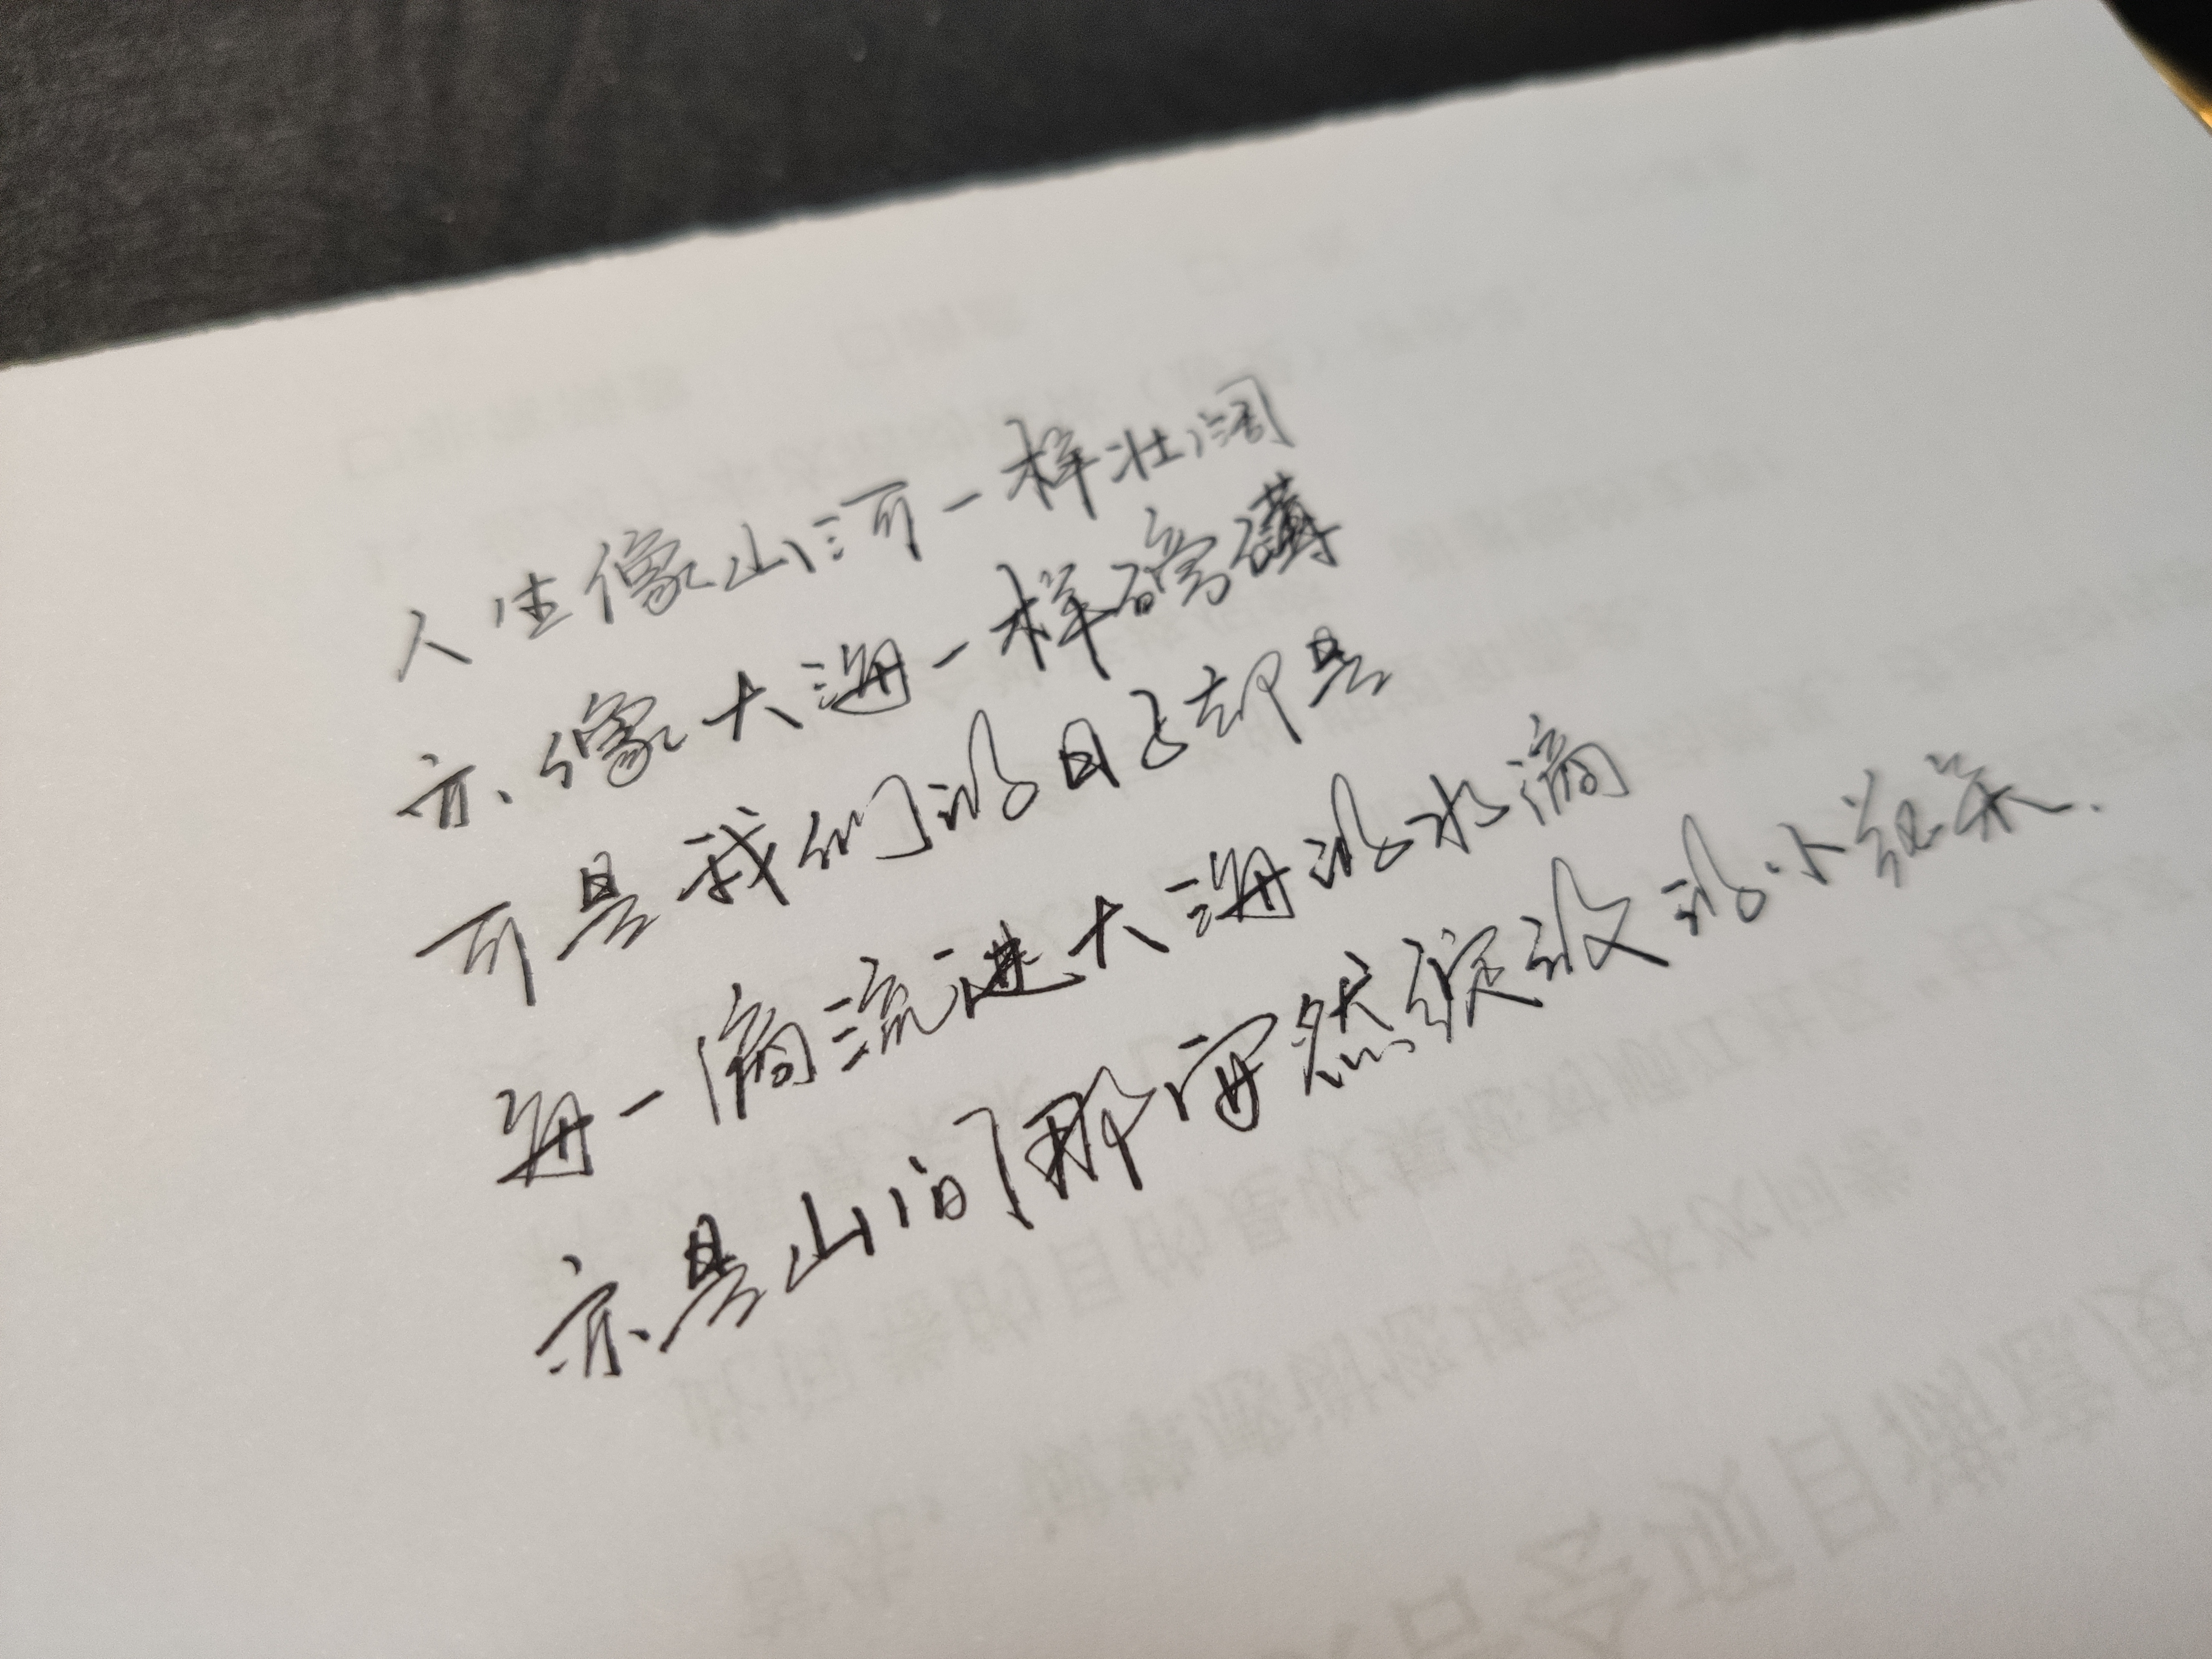 人生像山河一样壮阔
亦像大海一样磅礴
可是我们的日子却是
每一滴流进大海的水滴
亦是山间那安然绽放的小花朵.